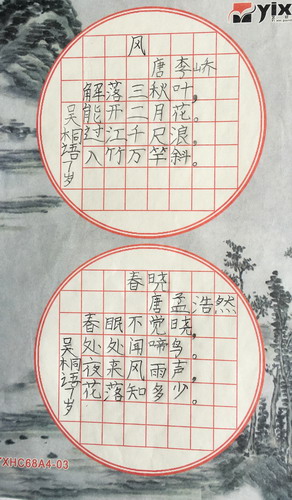 yix
风
唐 李峤
解落三秋叶，
能开二月花。
过江千尺浪，
入竹万竿斜。
吴桐语十岁
春晓
唐 孟浩然
春眠不觉晓，
处处闻啼鸟。
夜来风雨声，
花落知多少。
吴桐语十岁
TXHC68A4-03